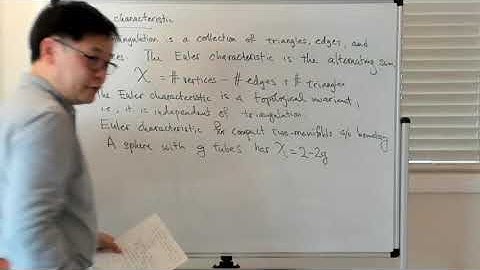 characteristic
triangulation is a collection of triangles, edges, and
The Euler characteristic is the alternating sum,
χ = # vertices − # edges + # triangles
The Euler characteristic is a topological invariant,
i.e., it is independent of triangulation.
Euler characteristic for compact two-manifolds homology
A sphere with g tubes has χ = 2-2g